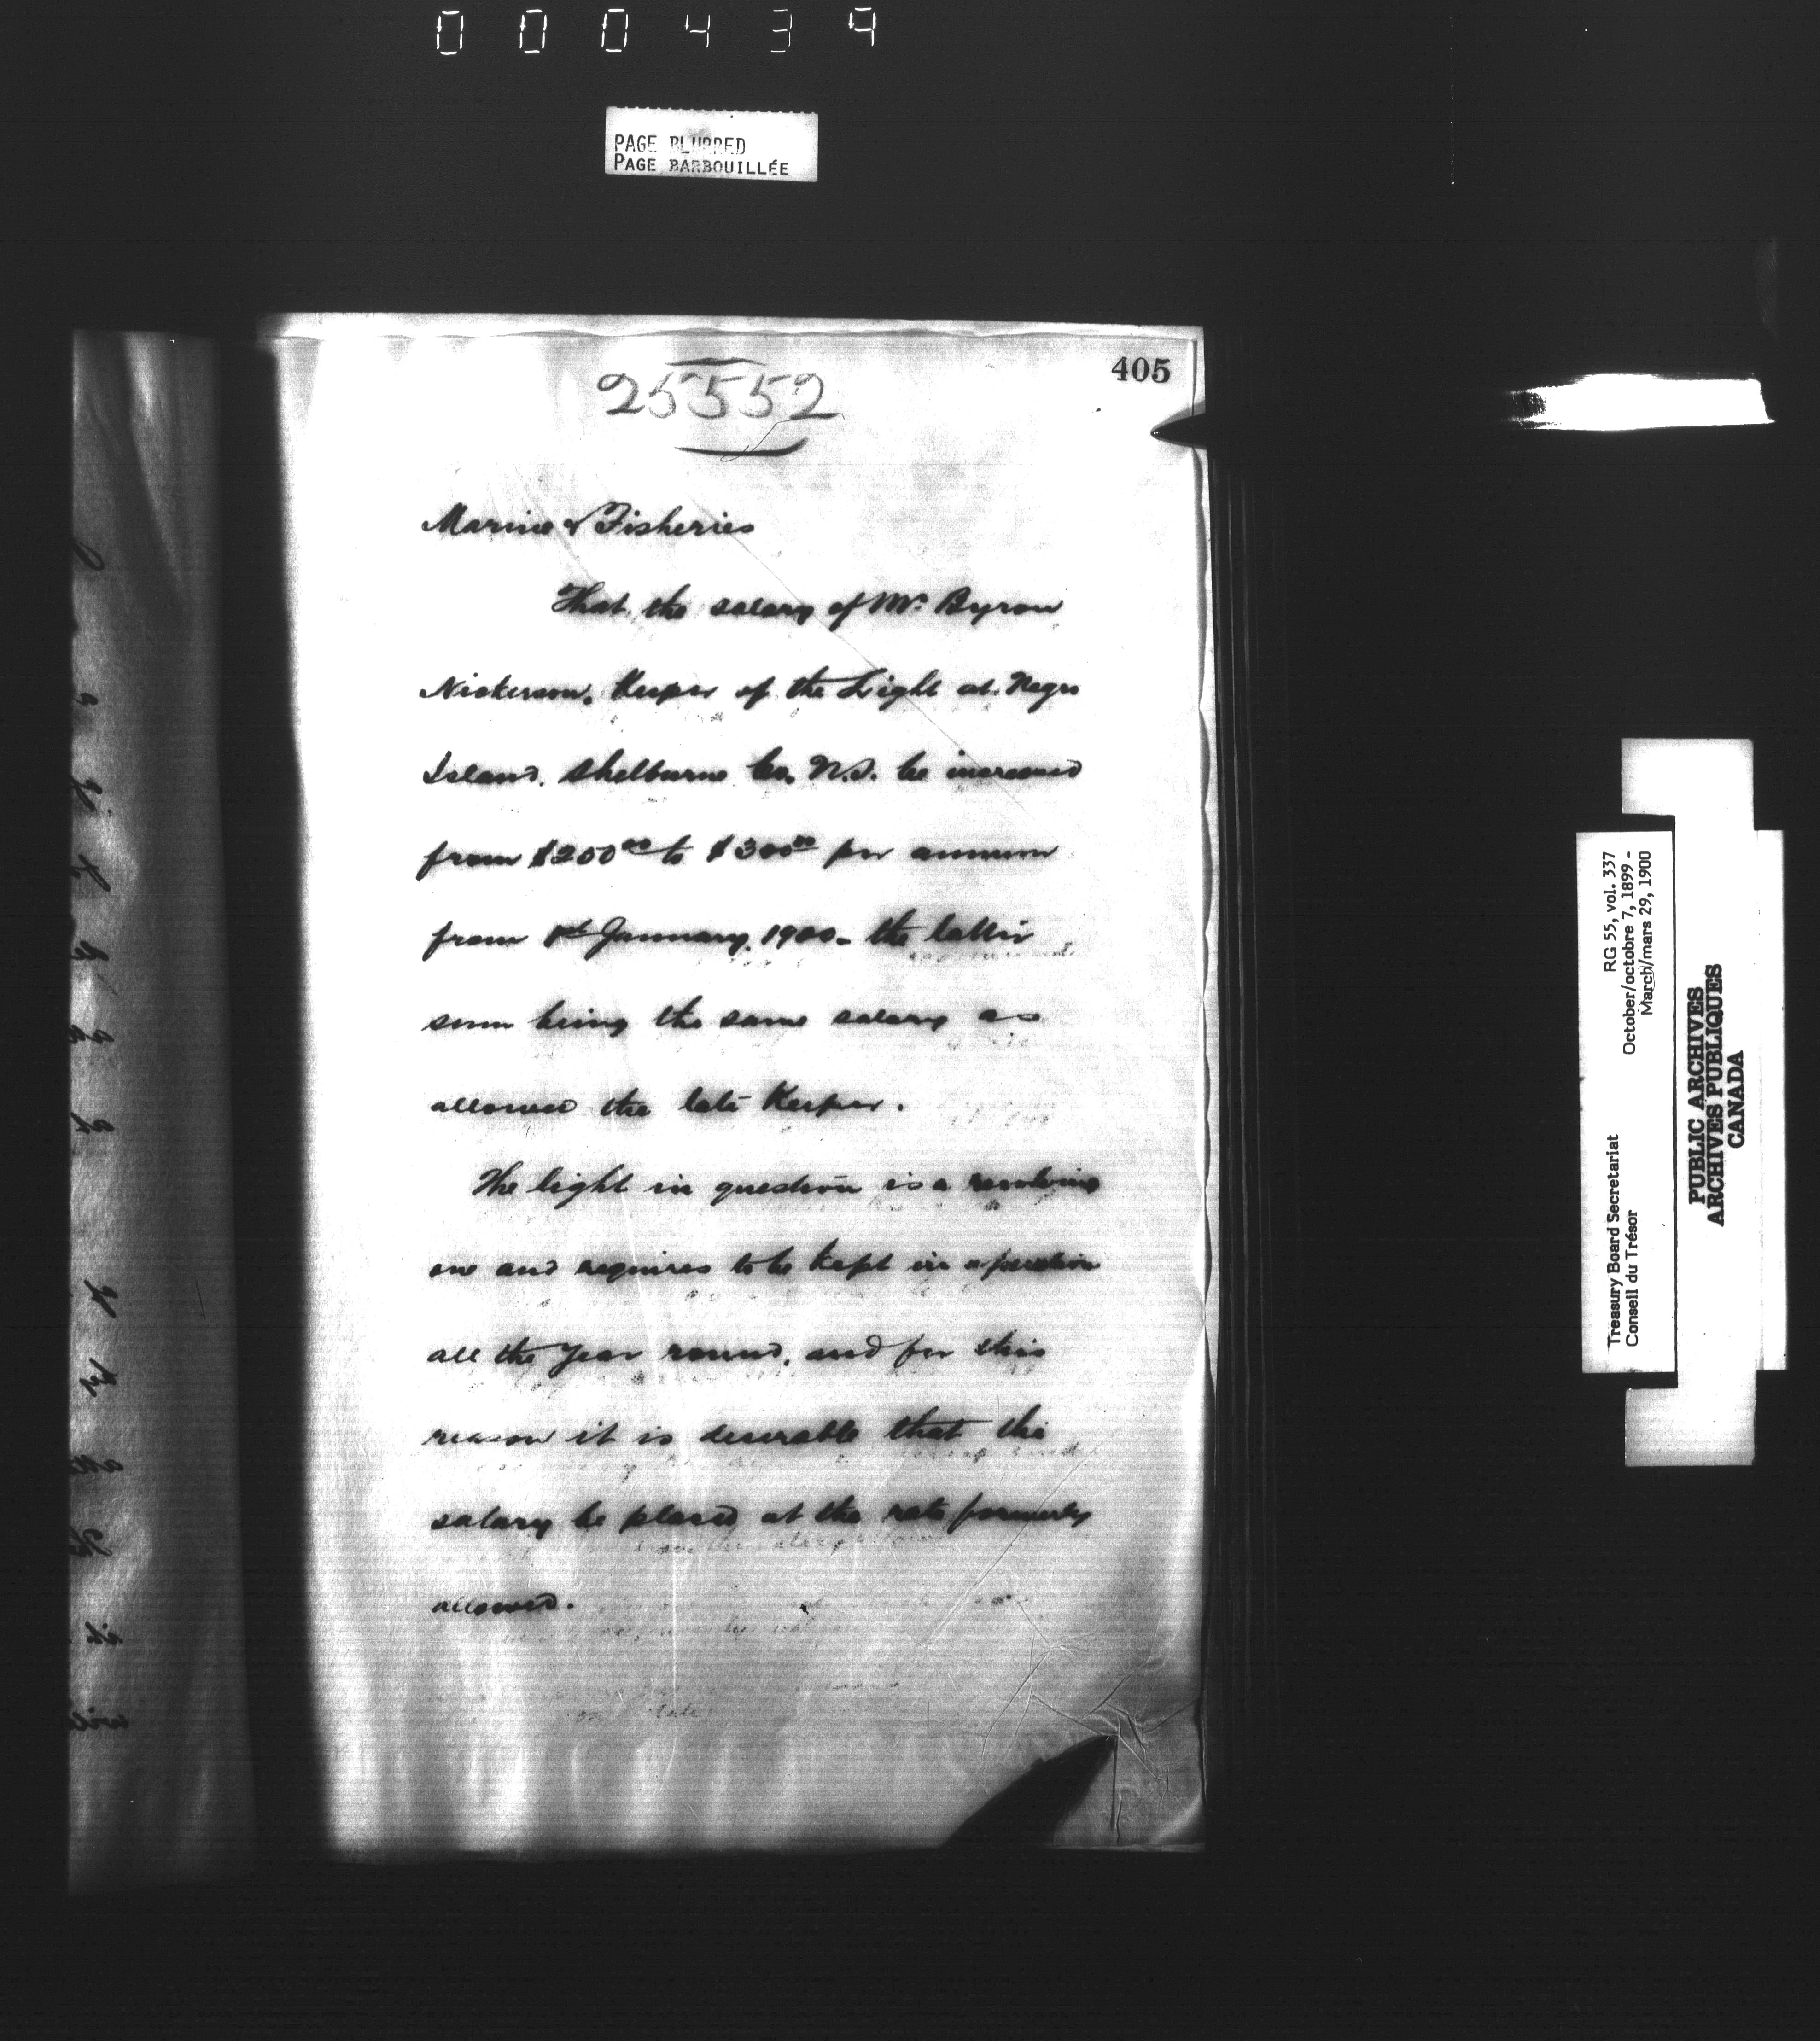 000439
PAGE BLURRED
PAGE BARBOUILLÉE
405
25552
Marine & Fisheries
That the salary of Mr Byron
Nickerson, Keeper of the Light at Negro
Island, Shelburne Co. N.S. be increased
from $200 00 to $300 00 per annum
from 1st January, 1900 - the latter
sum being the same salary as
allowed the late Keeper.
The light in question is a revolving
one and requires to be kept in operation
all the year round, and for this
reason it is desirable that the
salary be placed at the rate formerly
allowed.
Treasury Board Secretariat
Conseil du Trésor
RG 55, vol. 337
October/octobre 7, 1899 -
March/mars 29, 1900
PUBLIC ARCHIVES
ARCHIVES PUBLIQUES
CANADA